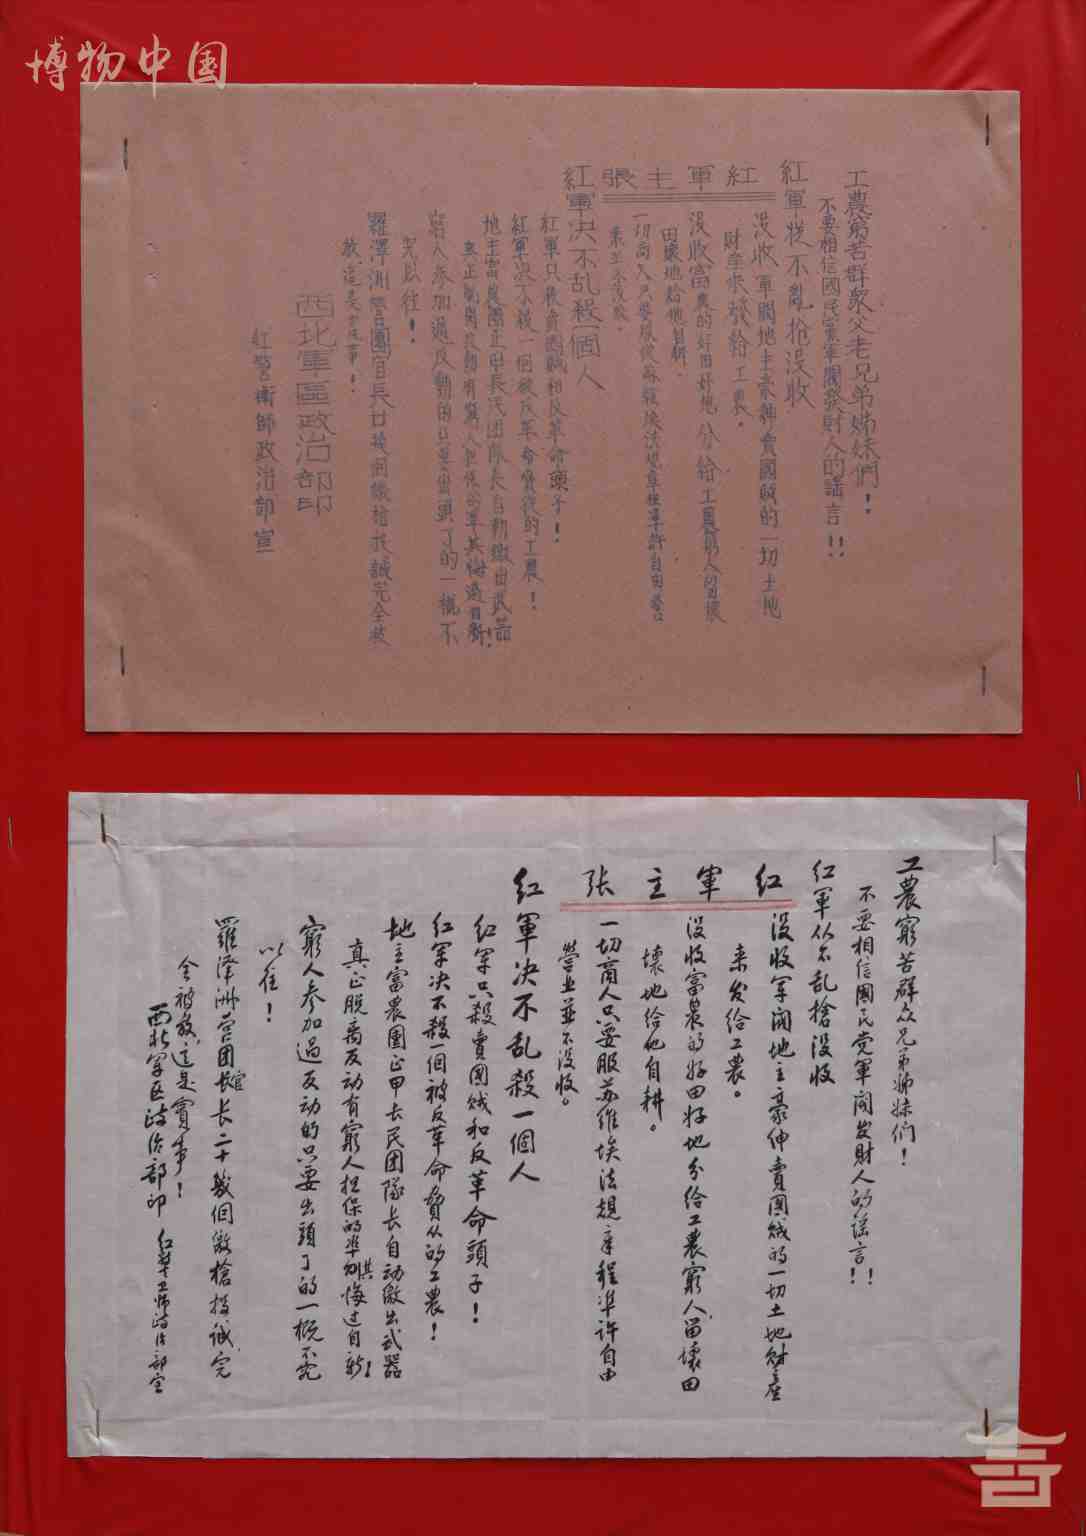 博物中国
工農窮苦群衆父老兄弟姊妹們！
不要相信國民黨軍閥發財人的謠言！！
紅軍從不亂搶没收
紅軍主張
没收軍閥地主豪紳賣國賊的一切土地
財産來發給工農。
没收富農的好田好地分給工農窮人留壞
田壞地給他自耕。
一切商人只要服從苏維埃法規章程準許自由营
業並不没收。
紅軍決不乱殺一個人
紅軍只殺賣國賊和反革命頭子！
紅軍決不殺一個被反革命脅從的工農！
地主富農團正甲長民团隊長自動繳出武器
真正脱離反動有窮人担保的準其悔過自新！
窮人参加過反動的只要出頭了的一概不
究以往！
羅澤洲營團官長廿幾個繳槍投誠完全被
放，這是實事！
西北軍區政治部印
紅警衛師政治部宣
工農窮苦群众兄弟姊妹们！
不要相信國民党軍閥发財人的謠言！！
红軍从不乱搶没收
红軍主张
没收軍閥地主豪伸賣國贼的一切土地财產
来发给工農。
没收富農的好田好地分给工農窮人留壞田
壞地给他自耕。
一切商人只要服苏維埃法規章程准許自由
營业並不没收。
红軍决不乱殺一個人
红軍只殺賣國贼和反革命頭子！
红军决不殺一個被反革命脅从的工農！
地主富農團正甲长民团隊长自动繳出武器
真正脱离反动有窮人担保的準其悔过自新！
窮人参加过反动的只要出頭了的一概不究
以往！
羅泽洲营团官长二十幾個繳槍投诚完
全被放，這是實事！
西北军区政治部印
红警卫师政治部宣